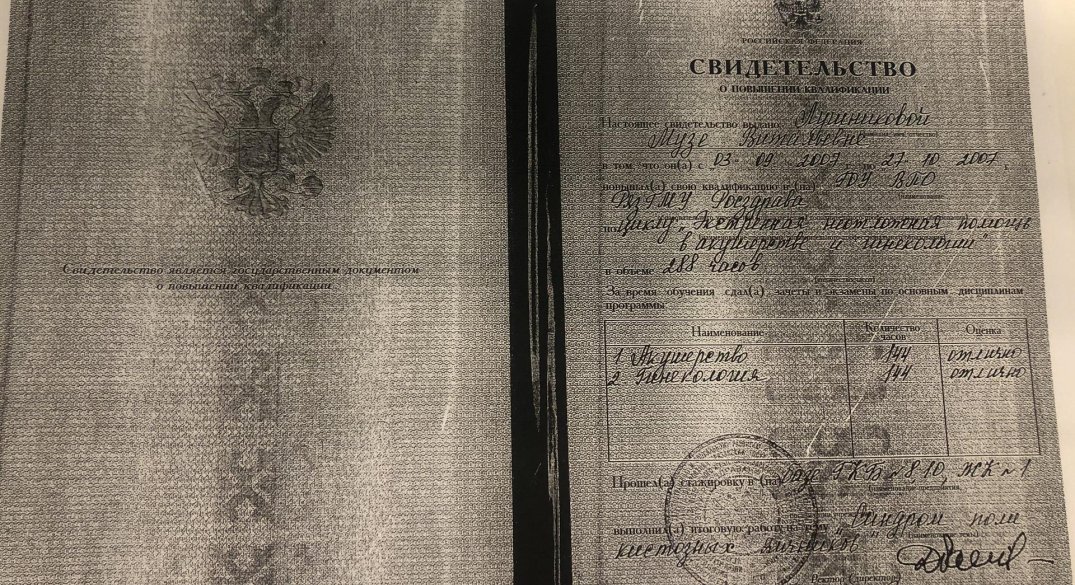 Свидетельство является государственным документом
о повышении квалификации
РОССИЙСКАЯ ФЕДЕРАЦИЯ
СВИДЕТЕЛЬСТВО
О ПОВЫШЕНИИ КВАЛИФИКАЦИИ
Настоящее свидетельство выдано
Музе Витальевне
в том, что он(а) с 03 09 2007 по 27 10 2007
повышал(а) свою квалификацию в (на) ГОУ ВПО
РязГМУ Росздрава
по циклу „Экстренная неотложная помощь
в акушерстве и гинекологии"
в объеме 288 часов
За время обучения сдал(а) зачеты и экзамены по основным дисциплинам
программы:
Наименование Количество часов Оценка
1 Акушерство 144 отлично
2. Гинекология 144 отлично
Прошел(а) стажировку в (на) базе ГКБ №8,10, ЖК №1
выполнил(а) итоговую работу на тему „Синдром поли
кистозных яичников"
Ректор (директор)